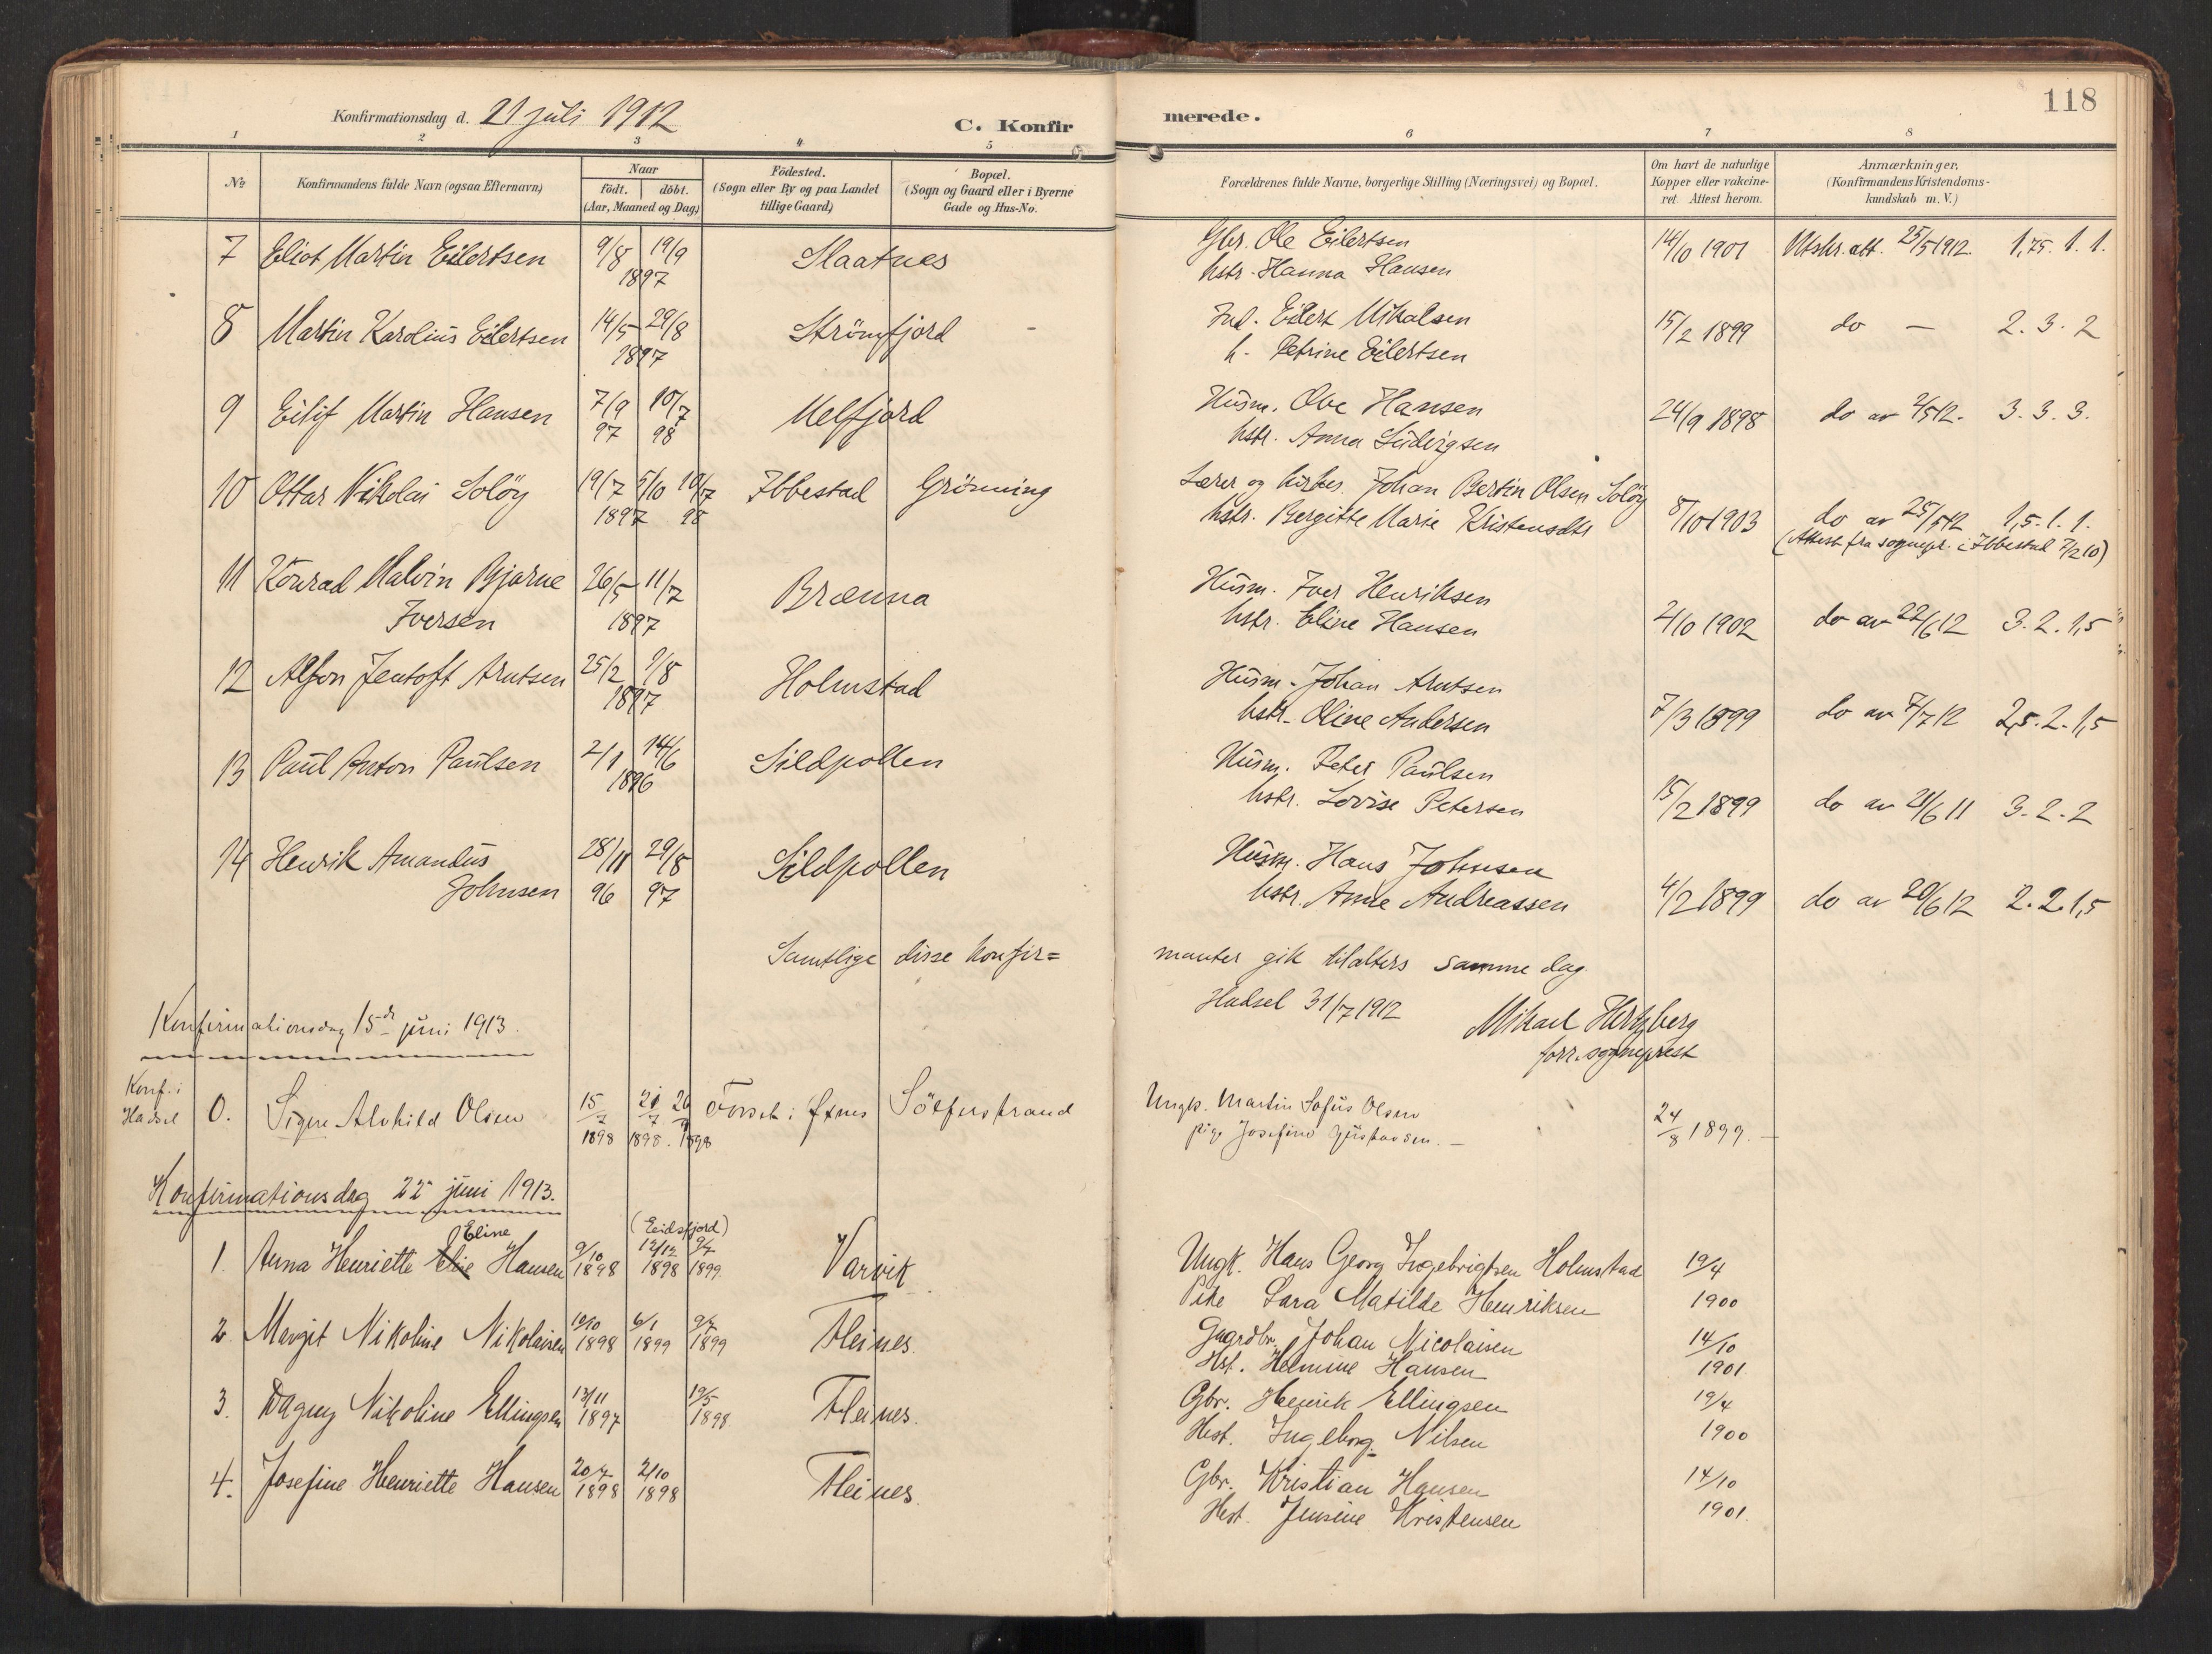 118
Konfirmationsdag d. 21 juli 1912
C. Konfirmerede.
1 2 3 4 5 6 7 8
No
Konfirmandens fulde Navn (ogsaa Efternavn)
Naar
födt. döbt.
(Aar, Maaned og Dag)
Födested.
(Sogn eller By og paa Landet
tillige Gaard)
Bopæl.
(Sogn og Gaard eller i Byerne
Gade og Hus-No.
Forældrenes fulde Navne, borgerlige Stilling (Næringsvei) og Bopæl.
Om havt de naturlige
Kopper eller vakcine-
ret. Attest herom.
Anmærkninger,
(Konfirmandens Kristendoms-
kundskab m. V.)
7 Eliot Martin Eilertsen 9/8 19/9 1897 Slaatnes
Gbr. Ole Eilertsen
hstr. Hanna Hansen
14/10 1901 Utskr. att. 25/5 1912. 1,75. 1. 1.
8 Martin Karolius Eilertsen 14/5 29/8 1897 Strömfjord -
Ind. Eilert Mikalsen
h. Petrine Eilertsen
15/2 1899 do — 2. 3. 2
9 Eilif Martin Hansen 7/9 97 10/7 98 Melfjord
Husm. Ove Hansen
hstr. Anna Ludvigsen
24/9 1898 do av 2/5 12. 3. 3. 3.
10 Ottar Nikolai Solöy 19/7 5/10 1897 10/7 98 Ibbestad Grönning
Lærer og kirkes. Johan Bertin Olsen Solöy
hstr. Bergitte Marie Kristensdtr
8/10 1903 do av 25/5 12 1,5. 1. 1.
(Attest fra sognepr. i Ibbestad 7/2 10)
11 Konrad Malvin Bjarne
Iversen 26/5 11/7 1897 Brænna
Husm. Iver Henriksen
hstr. Eline Hansen
2/10 1902 do av 22/6 12 3. 2. 1,5
12 Alfon Jentoft Arntsen 25/2 1/8 1897 Holmstad
Husm. Johan Arntsen
hstr. Oline Andersen
7/3 1899 do av 7/7 12 2,5. 2. 1,5
13 Paul Anton Paulsen 2/1 14/6 1896 Sildpollen
Husm. Peter Paulsen
hstr. Lovise Petersen
15/2 1899 do av 21/6 11 3. 2. 2
14 Henrik Amandus
Johnsen 28/11 96 29/8 97 Sildpollen
Husm. Hans Johnsen
hstr. Anne Andreassen
4/2 1899 do av 20/6 12 2. 2. 1,5
Samtlige disse konfir=
manter gik til alters samme dag.
Hadsel 31/7 1912
Mikael Hertzberg
forr. sogneprest
Konfirmationsdag 15de juni 1913.
Konf. i
Hadsel
0. Signe Alvhild Olsen 15/7 1898 21/7 1898. 26/9 1898 Forsek i Öxnes Sötfirstrand
Ungk. Martin Sofus Olsen
pige Josefine Gustavsen. —
24/8 1899. —
Konfirmationsdag 22 juni 1913.
(Eidsfjord)
Eline
1. Anna Henriette Elie Hansen 9/10 1898 12/12 1898 9/7 1899 Varvik
Ungk. Hans Georg Ingebrigtsen Holmstad
Pike Sara Matilde Henriksen
19/4
1900
2 Margit Nikoline Nikolaisen 10/10 1898 6/1 1899 9/7 1899 Fleines.
Gaardbr. Johan Nicolaisen
Hst. Helmine Hansen
14/10
1901
3. Dagny Nikoline Ellingsen 13/11 1897 19/5 1898. Fleines.
Gbr. Henrik Ellingsen
Hst. Ingeborg Nilsen
19/4
1900
4. Josefine Henriette Hansen 20/7 1898 2/10 1898 Fleines.
Gbr. Kristian Hansen
Hst. Jensine Kristensen
14/10
1901.